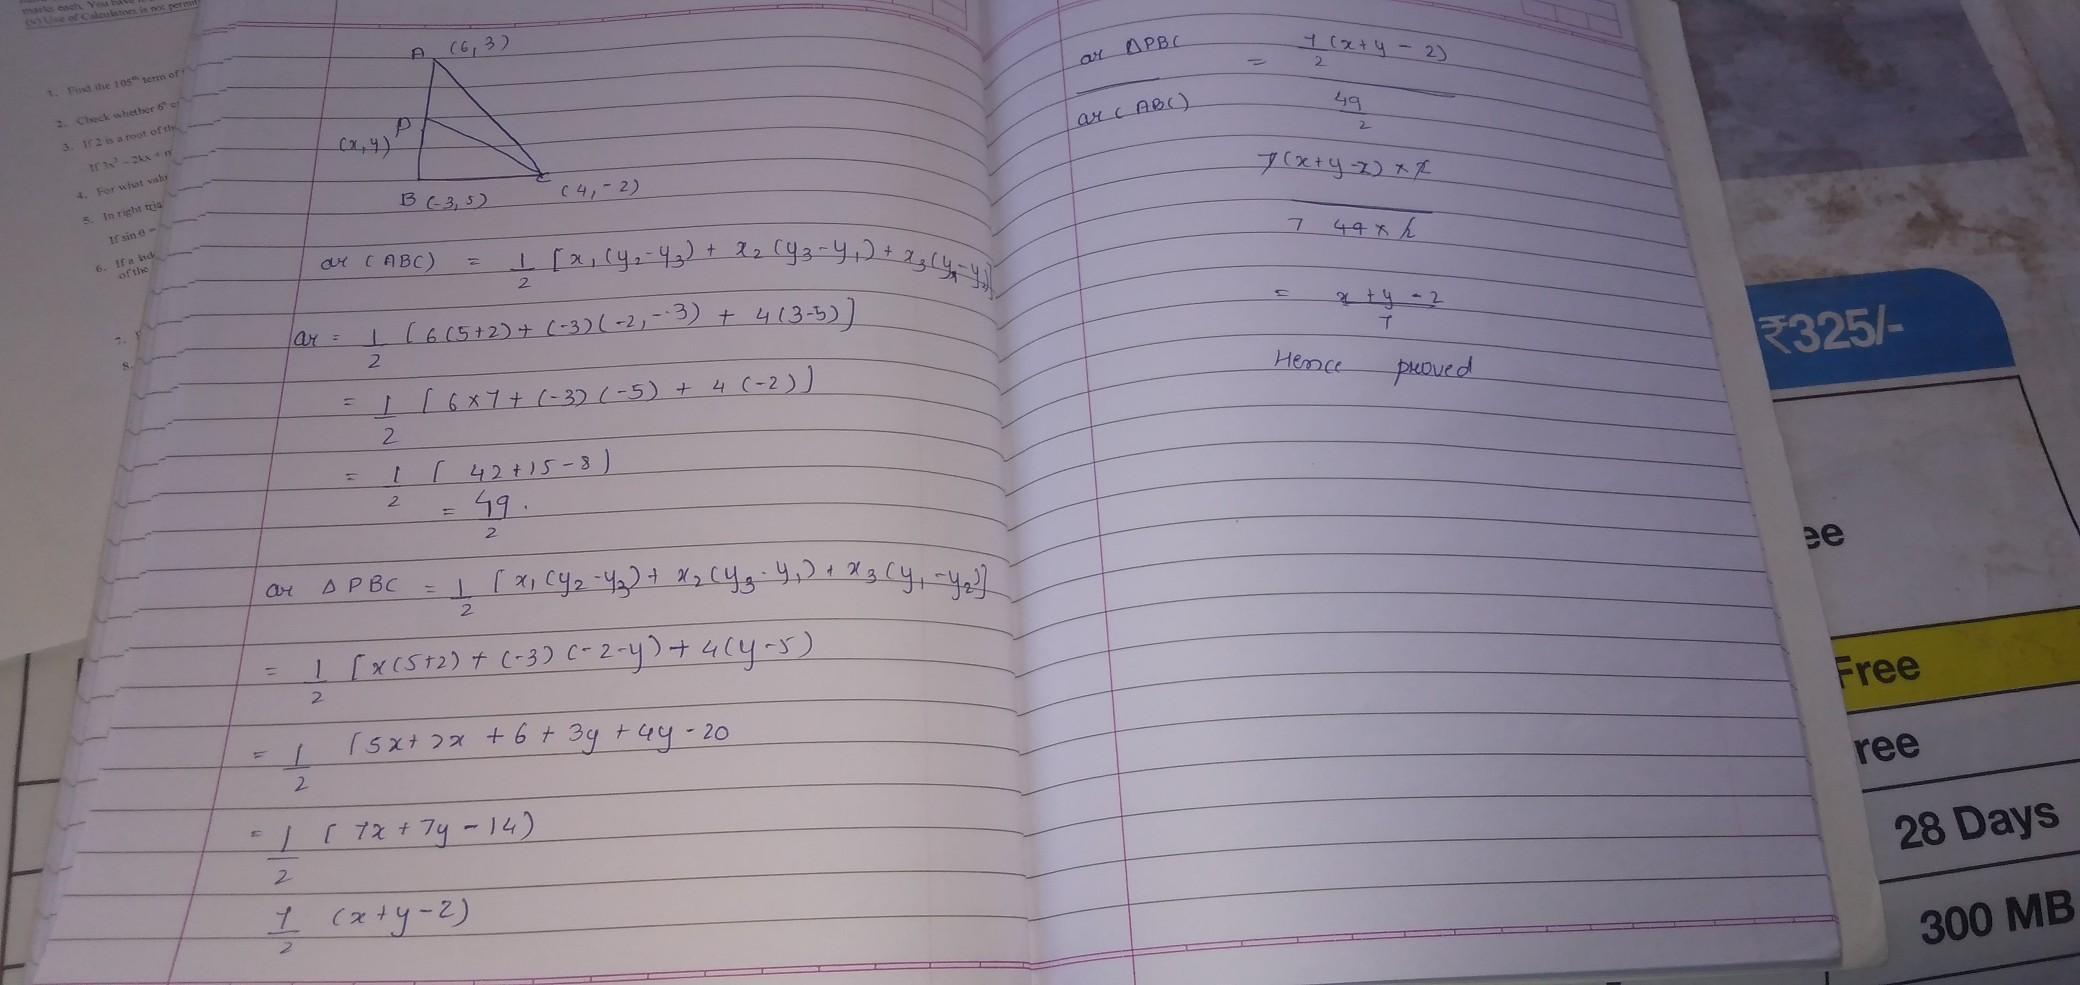 marks each. You have
(v) Use of Calculators is not permit
1. Find the 105th term of
2. Check whether 6ⁿ
3. If 2 is a root of th
If 3x² - 2kx +
4. For what valu
5. In right tria
If sin θ =
6. If a lad
of the
8.
A (6, 3)
P
(x, y)
B (-3, 5)
C (4, -2)
ar (ABC) = 1/2 [x₁(y₂-y₃) + x₂(y₃-y₁) + x₃(y₁-y₂)]
ar = 1/2 [6(5+2) + (-3)(-2, -3) + 4(3-5)]
= 1/2 [6×7 + (-3)(-5) + 4(-2)]
= 1/2 [42+15-8)
= 49/2.
ar Δ PBC = 1/2 [x₁(y₂-y₃) + x₂(y₃-y₁) + x₃(y₁-y₂)]
= 1/2 [x(5+2) + (-3)(-2-y) + 4(y-5)
= 1/2 [5x+2x +6 + 3y + 4y - 20
= 1/2 [7x + 7y - 14)
7/2 (x+y-2)
ar ΔPBC / ar (ABC) = 7/2 (x+y - 2) / 49/2
7(x+y-2) × 2 / 7 49 × 2
= x+y-2 / 7
Hence proved
₹325/-
ee
Free
ree
28 Days
300 MB